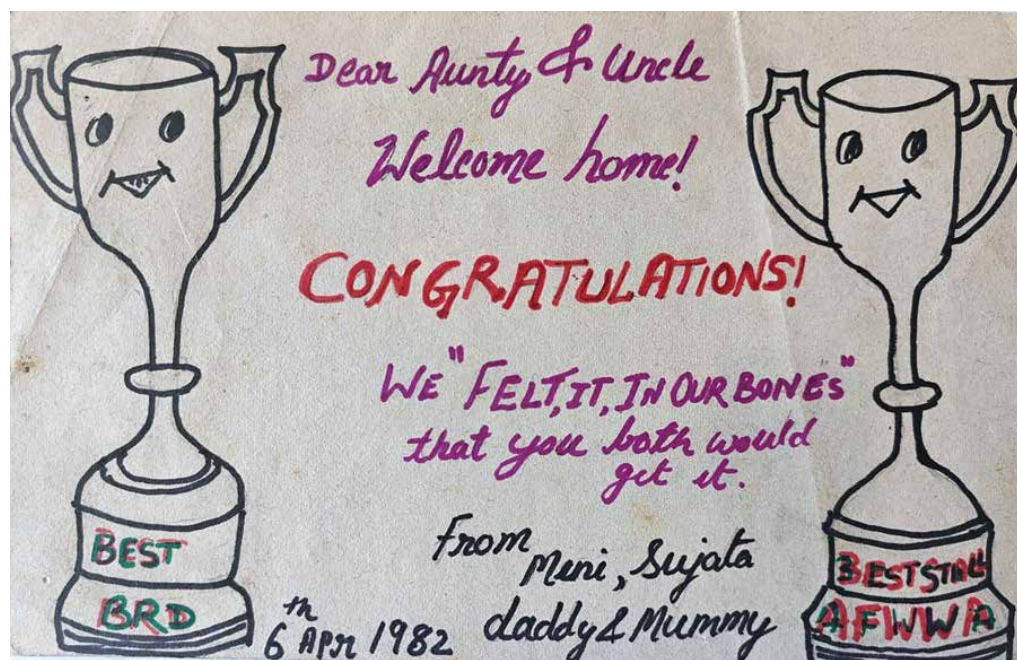 Dear Aunty & Uncle
Welcome home!
CONGRATULATIONS!
WE "FELT, IT, IN OUR BONES"
that you both would
get it.
From Meni, Sujata
daddy & Mummy
6th APR 1982
BEST
BRD
BEST STALL
AFWWA